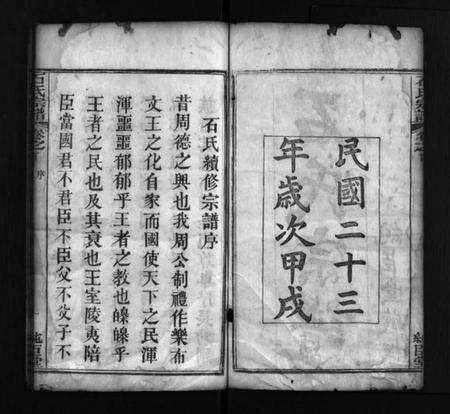 民國二十三
年歲次甲戌
石氏續修宗譜序
昔周德之興也我周公制禮作樂布
文王之化自家而國使天下之民渾
渾噩噩郁郁乎王者之教也皞皞乎
王者之民也及其衰也王室陵夷陪
臣當國君不君臣不臣父不父子不
石氏宗譜
序